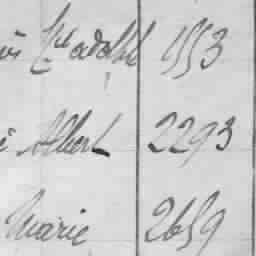 Adolphe 1553
Albert 2293
Marie 2659